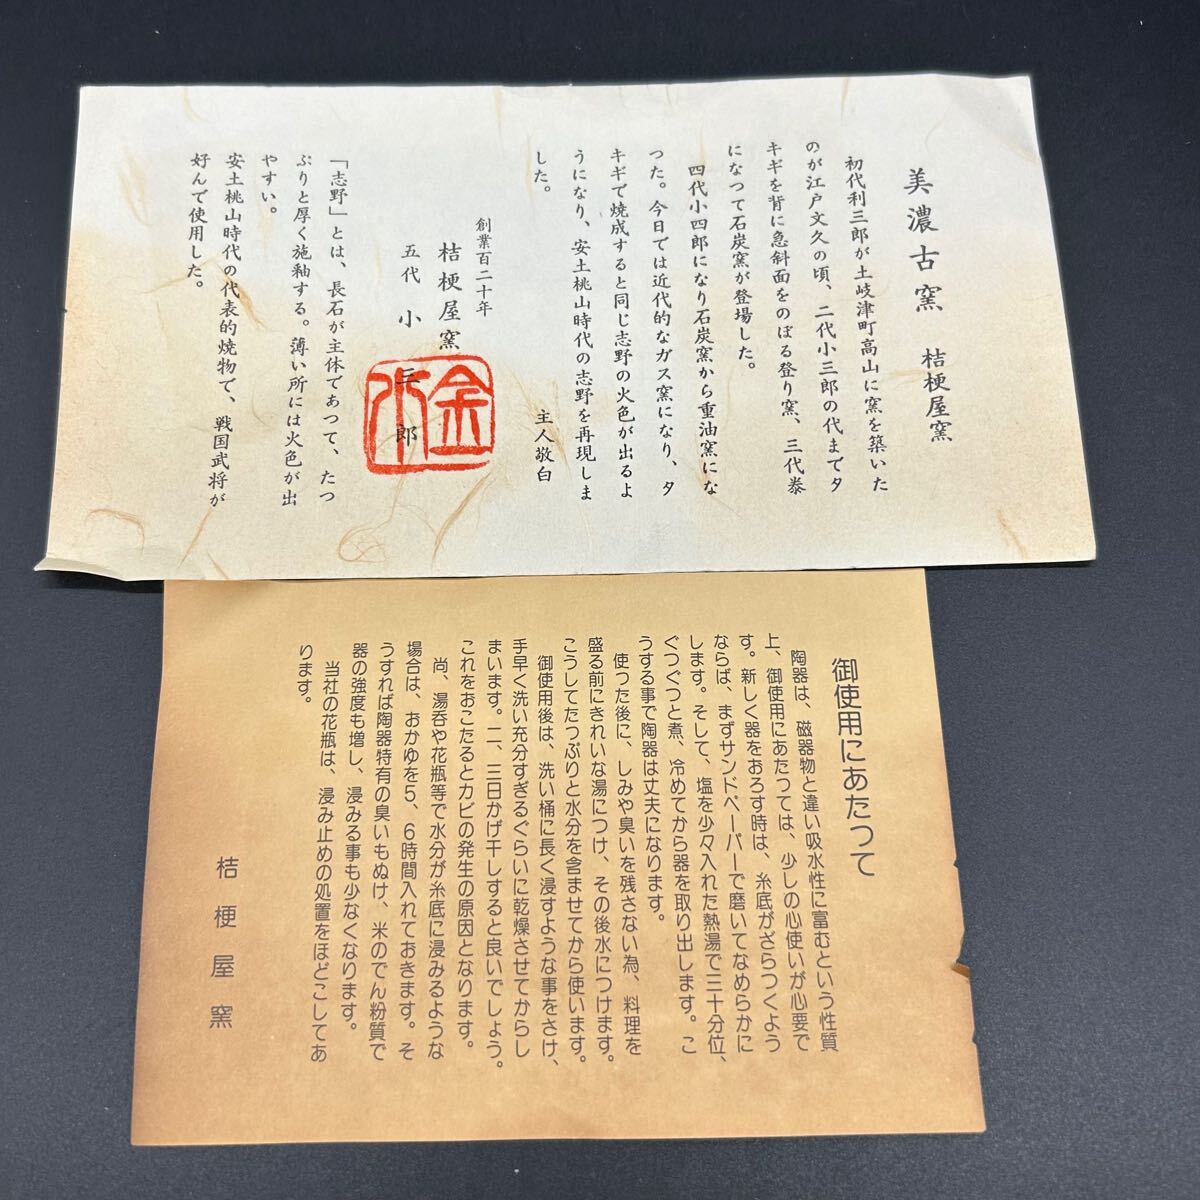 美濃古窯　桔梗屋窯
初代利三郎が土岐津町高山に窯を築いた
のが江戸文久の頃、二代小三郎の代までタ
キギを背に急斜面をのぼる登り窯、三代泰
になつて石炭窯が登場した。
四代小四郎になり石炭窯から重油窯にな
つた。今日では近代的なガス窯になり、タ
キギで焼成すると同じ志野の火色が出るよ
うになり、安土桃山時代の志野を再現しま
した。
主人敬白
創業百二十年
桔梗屋窯
五代　小三郎
「志野」とは、長石が主体であつて、たつ
ぷりと厚く施釉する。薄い所には火色が出
やすい。
安土桃山時代の代表的焼物で、戦国武将が
好んで使用した。
御使用にあたつて
陶器は、磁器物と違い吸水性に富むという性質
上、御使用にあたつては、少しの心使いが心要で
す。新しく器をおろす時は、糸底がざらつくよう
ならば、まずサンドペーパーで磨いてなめらかに
します。そして、塩を少々入れた熱湯で三十分位、
ぐつぐつと煮、冷めてから器を取り出します。こ
うする事で陶器は丈夫になります。
使つた後に、しみや臭いを残さない為、料理を
盛る前にきれいな湯につけ、その後水につけます。
こうしてたつぷりと水分を含ませてから使います。
御使用後は、洗い桶に長く浸すような事をさけ、
手早く洗い充分すぎるぐらいに乾燥させてからし
まいます。二、三日かげ干しすると良いでしょう。
これをおこたるとカビの発生の原因となります。
尚、湯呑や花瓶等で水分が糸底に浸みるような
場合は、おかゆを5、6時間入れておきます。そ
うすれば陶器特有の臭いもぬけ、米のでん粉質で
器の強度も増し、浸みる事も少なくなります。
当社の花瓶は、浸み止めの処置をほどこしてあ
ります。
桔梗屋窯